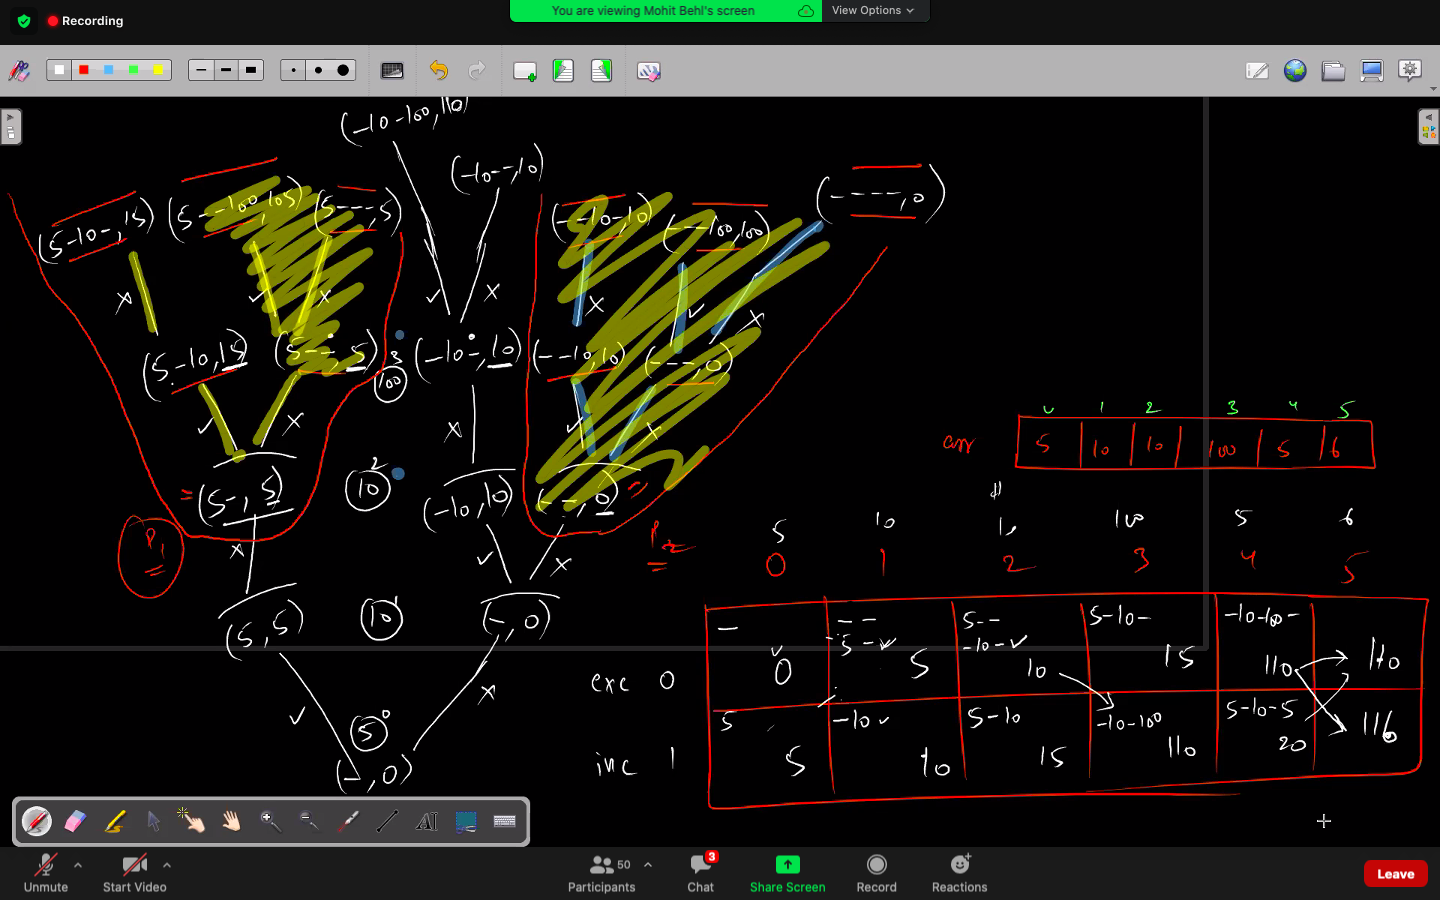 Recording
You are viewing Mohit Behl's screen
View Options
(-10-100,110)
(-10--,10)
(5-10-,15)
(5--100,105)
(5---,5)
(--10-,10)
(---100,100)
(----,0)
x
✓
x
✓
x
x
✓
x
(5-10,15)
(5--,5)
3
100
(-10-,10)
(--10,10)
(---,0)
✓
x
x
✓
x
0 1 2 3 4 5
arr 5 10 10 100 5 6
= (5-,5)
2
10
(-10,10)
(--,0) =
P1
P2
x
✓
x
5 10 10 100 5 6
0 1 2 3 4 5
(5,5)
1
10
(-,0)
✓
x
0
5
(-,0)
exc 0
- 0
-- 5- ✓ 5
5-- -10- ✓ 10
5-10- 15
-10-100- 110
110
inc 1
5 5
-10 ✓ 10
5-10 15
-10-100 110
5-10-5 20
116
Unmute
Start Video
50
Participants
3
Chat
Share Screen
Record
Reactions
Leave